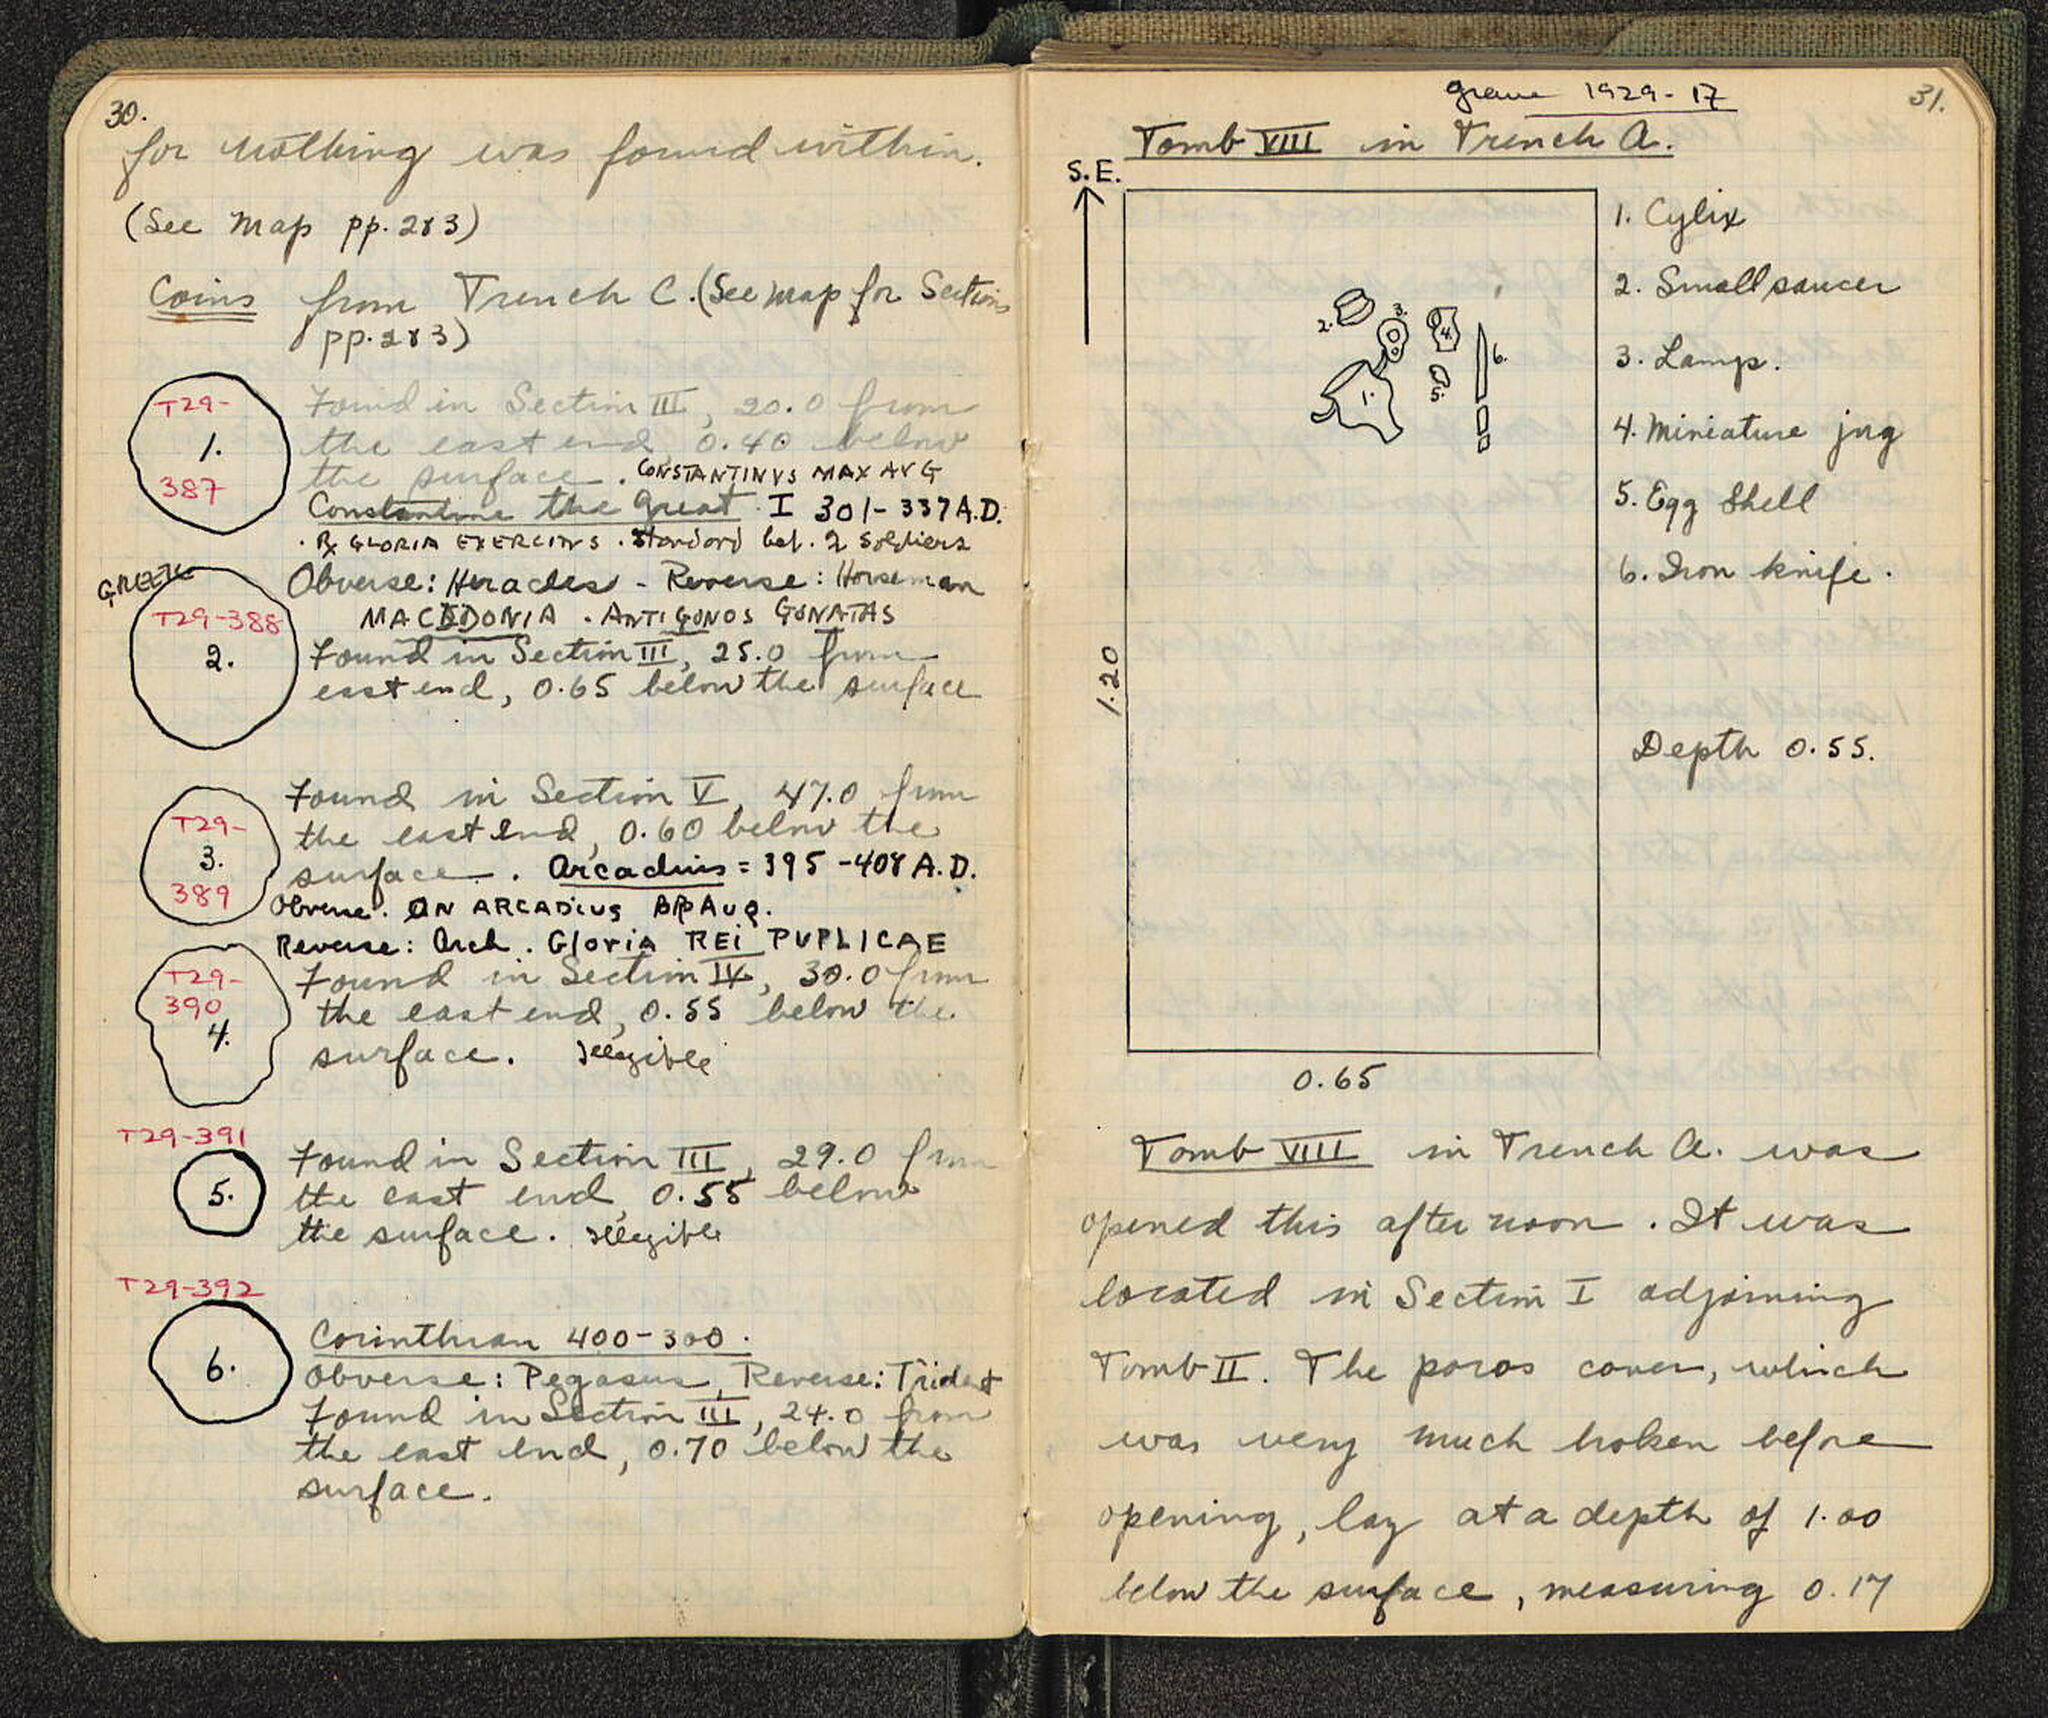 30.
for nothing was found within.
(See map pp. 2&3)
Coins from Trench C. (See map for Sections
pp. 2&3)
T29-
1.
387
Found in Section III, 20.0 from
the east end, 0.40 below
the surface. CONSTANTINVS MAX AVG
Constantine the Great I 301-337 A.D.
. ℞ GLORIA EXERCITVS . Standard bet. 2 soldiers
GREEK
T29-388
2.
Obverse: Heracles - Reverse: Horseman
MACEDONIA . ANTIGONOS GONATAS
Found in Section III, 25.0 from
east end, 0.65 below the surface
T29-
3.
389
Found in Section V, 47.0 from
the east end, 0.60 below the
surface. Arcadius = 395-408 A.D.
Obverse. DN ARCADIUS AUG.
Reverse: Arch. Gloria REi PVPLICAE
T29-
390
4.
Found in Section IV, 30.0 from
the east end, 0.55 below the
surface. Illegible
T29-391
5.
Found in Section III, 29.0 from
the east end, 0.55 below
the surface. Illegible
T29-392
6.
Corinthian 400-300.
Obverse: Pegasus, Reverse: Trident
Found in Section III, 24.0 from
the east end, 0.70 below the
surface.
31.
grave 1929-17
Tomb VIII in Trench A.
S.E.
1. Cylix
2. Small saucer
3. Lamp.
4. Miniature jug
5. Egg Shell
6. Iron knife.
2.
3.
4.
6.
1.
5.
1.20
Depth 0.55.
0.65
Tomb VIII in Trench A. was
opened this afternoon. It was
located in Section I adjoining
Tomb II. The poros cover, which
was very much broken before
opening, lay at a depth of 1.00
below the surface, measuring 0.17